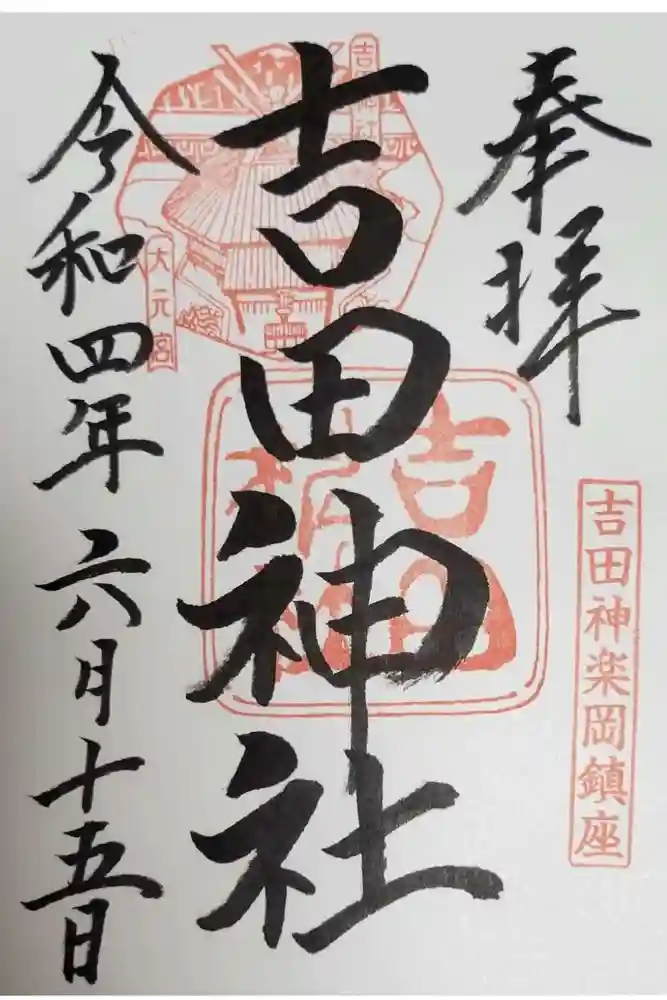 奉拝
吉田神楽岡鎮座
吉田神社
吉田神社
大元宮
吉田神社
令和四年六月十五日